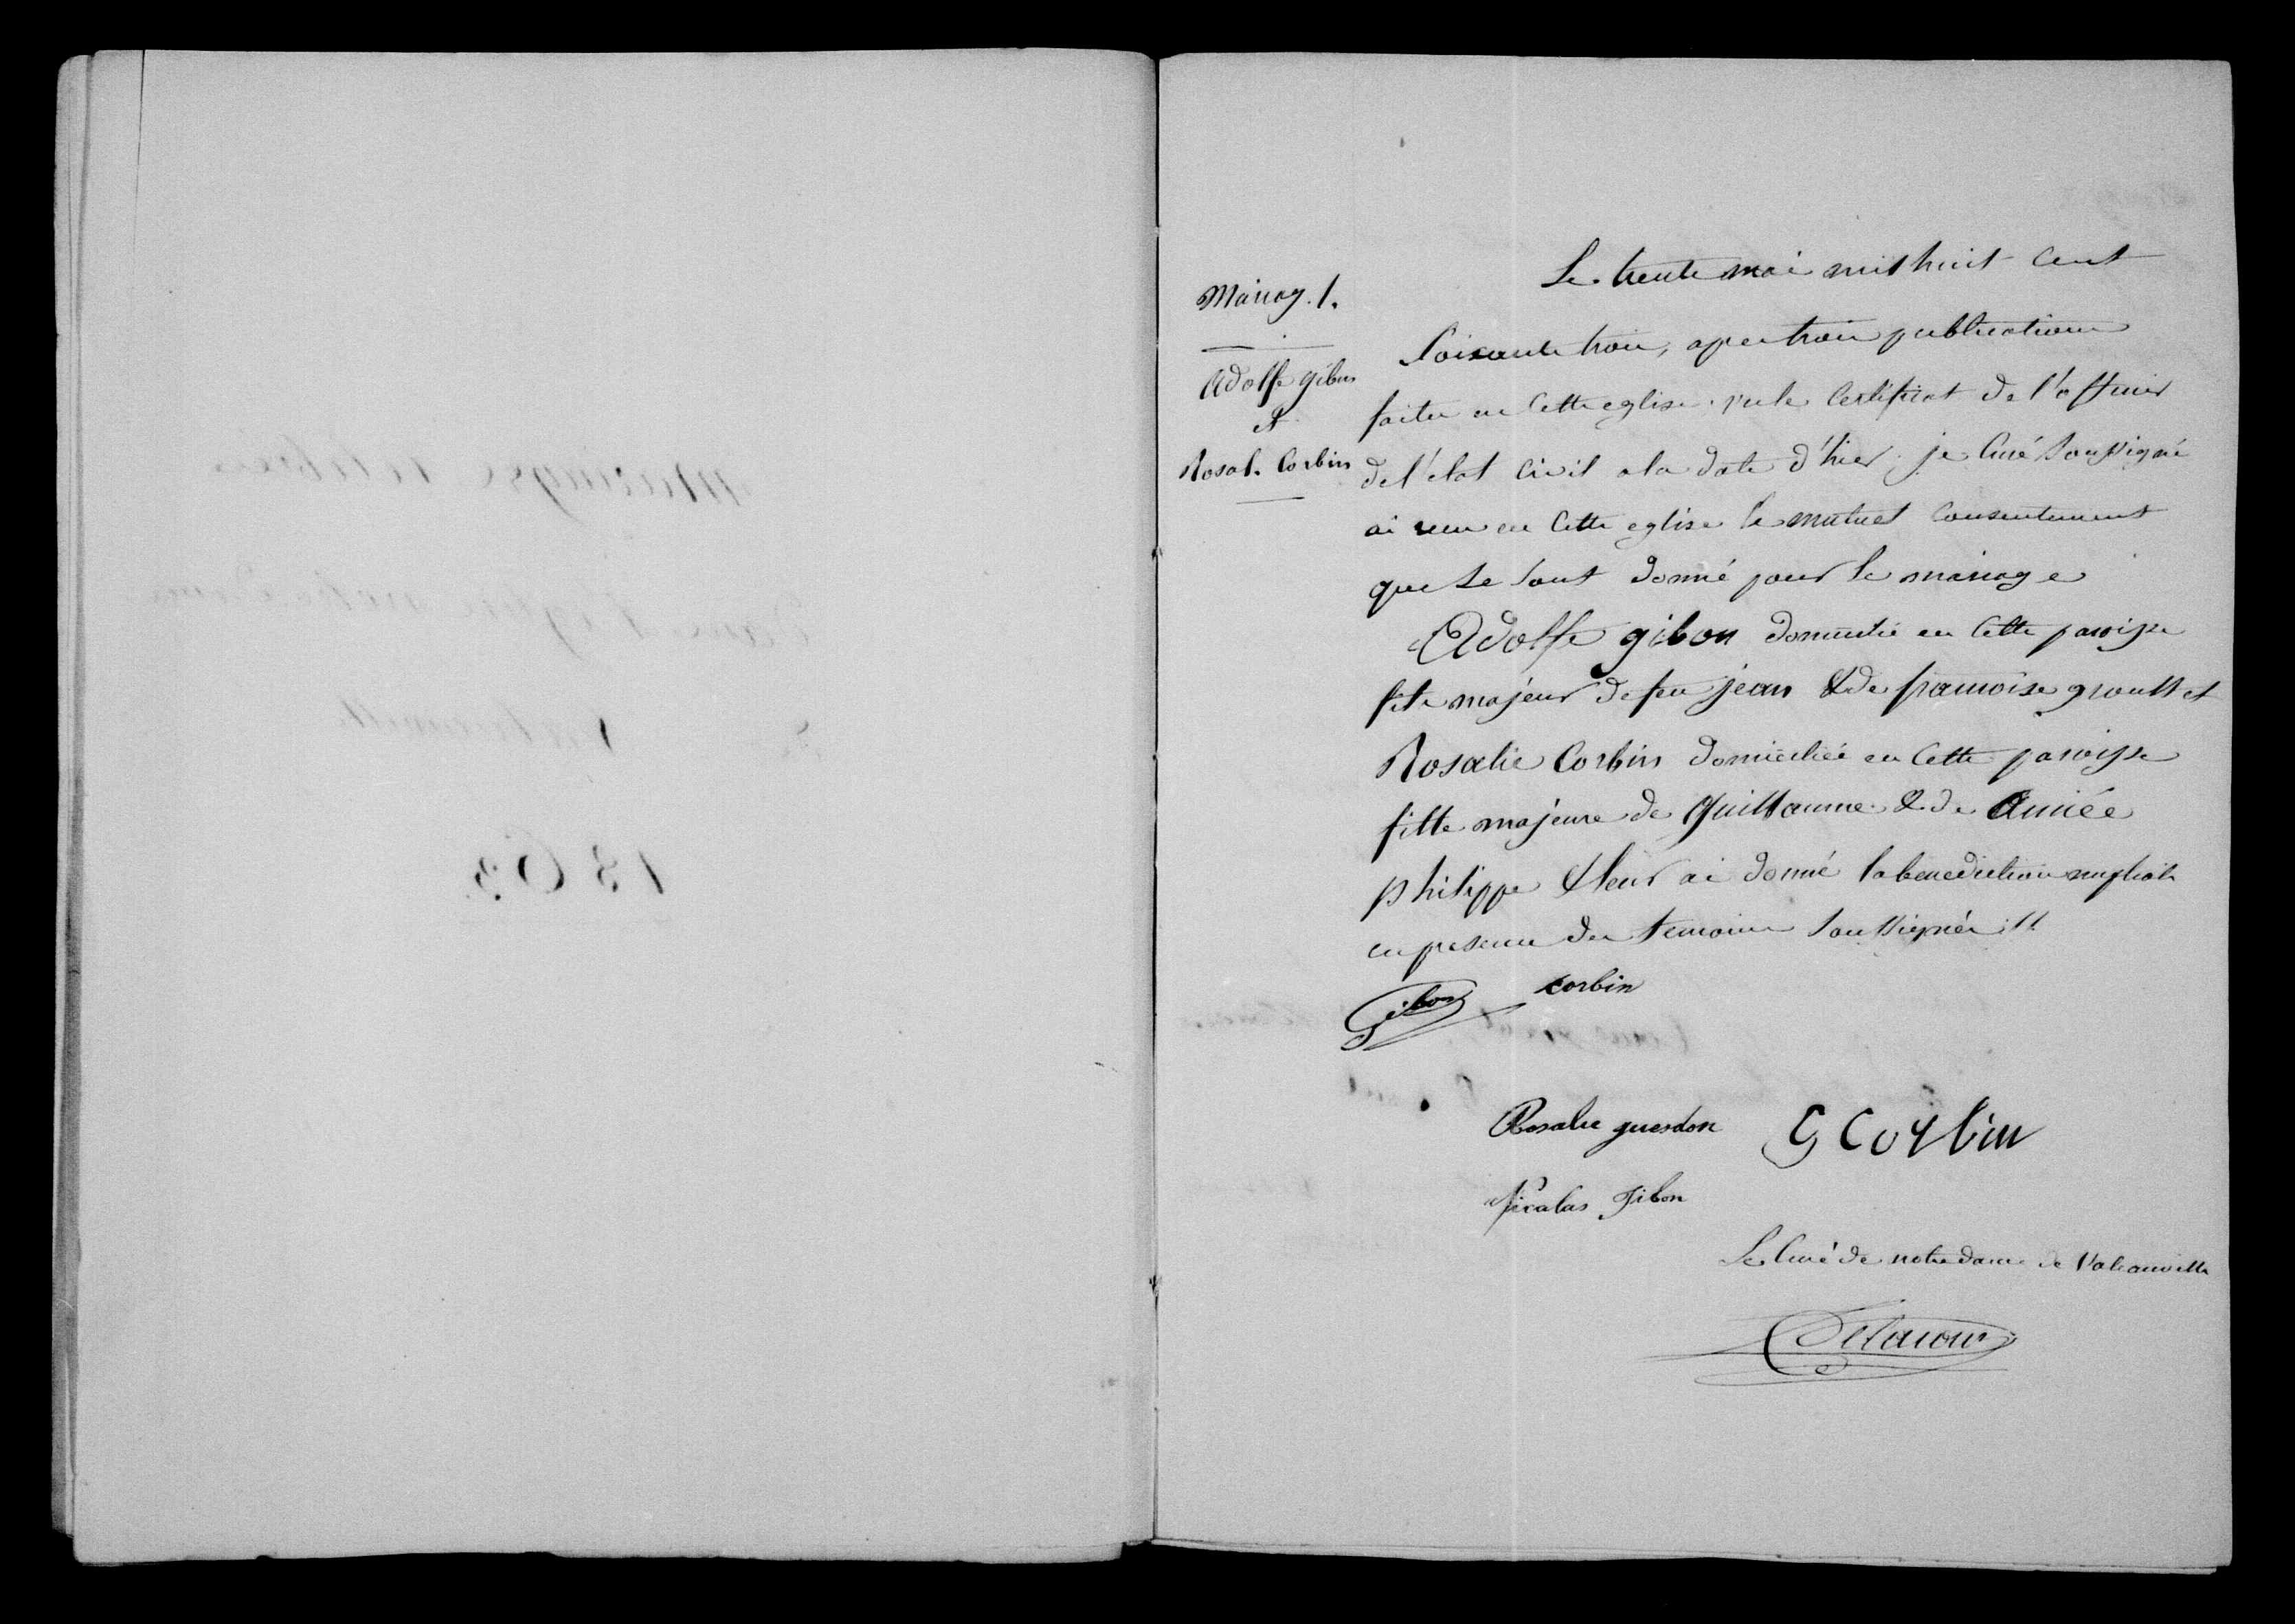 Mariag. 1.
Adolfe gibon
et
Rosal. Corbin
Le trente mai mil huit cent
soixante trois, apres trois publications
faites en cette eglise. vu le certificat de l'officier
de l'etat civil a la date d'hier. je curé soussigné
ai reçu en cette eglise le mutuel consentement
que se sont donné pour le mariage
Adolfe gibon domicilié en cette paroisse
fils majeur de feu jean & de francoise groult et
Rosalie Corbin domiciliée en cette paroisse
fille majeure de Guillaume & de Aimée
philippe & leur ai donné la benediction nuptiale
en presence des temoins soussignés
Gibon corbin
Rosalie guesdon G Corbin
Nicolas Gibon
Le Curé de notre dame de
1863